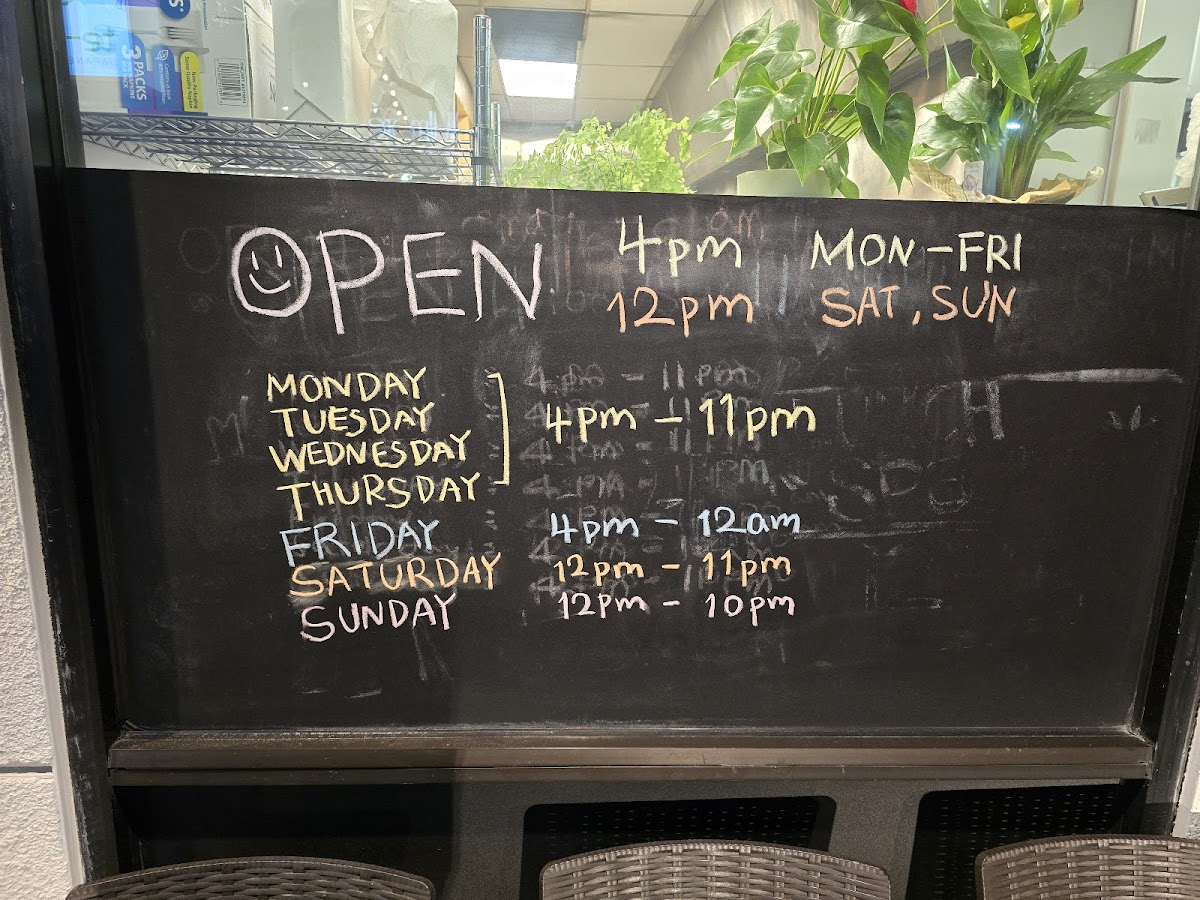 3 PACKS
OPEN 4pm MON-FRI
12pm SAT, SUN
MONDAY
TUESDAY 4pm - 11pm
WEDNESDAY
THURSDAY
FRIDAY 4pm - 12am
SATURDAY 12pm - 11pm
SUNDAY 12pm - 10pm